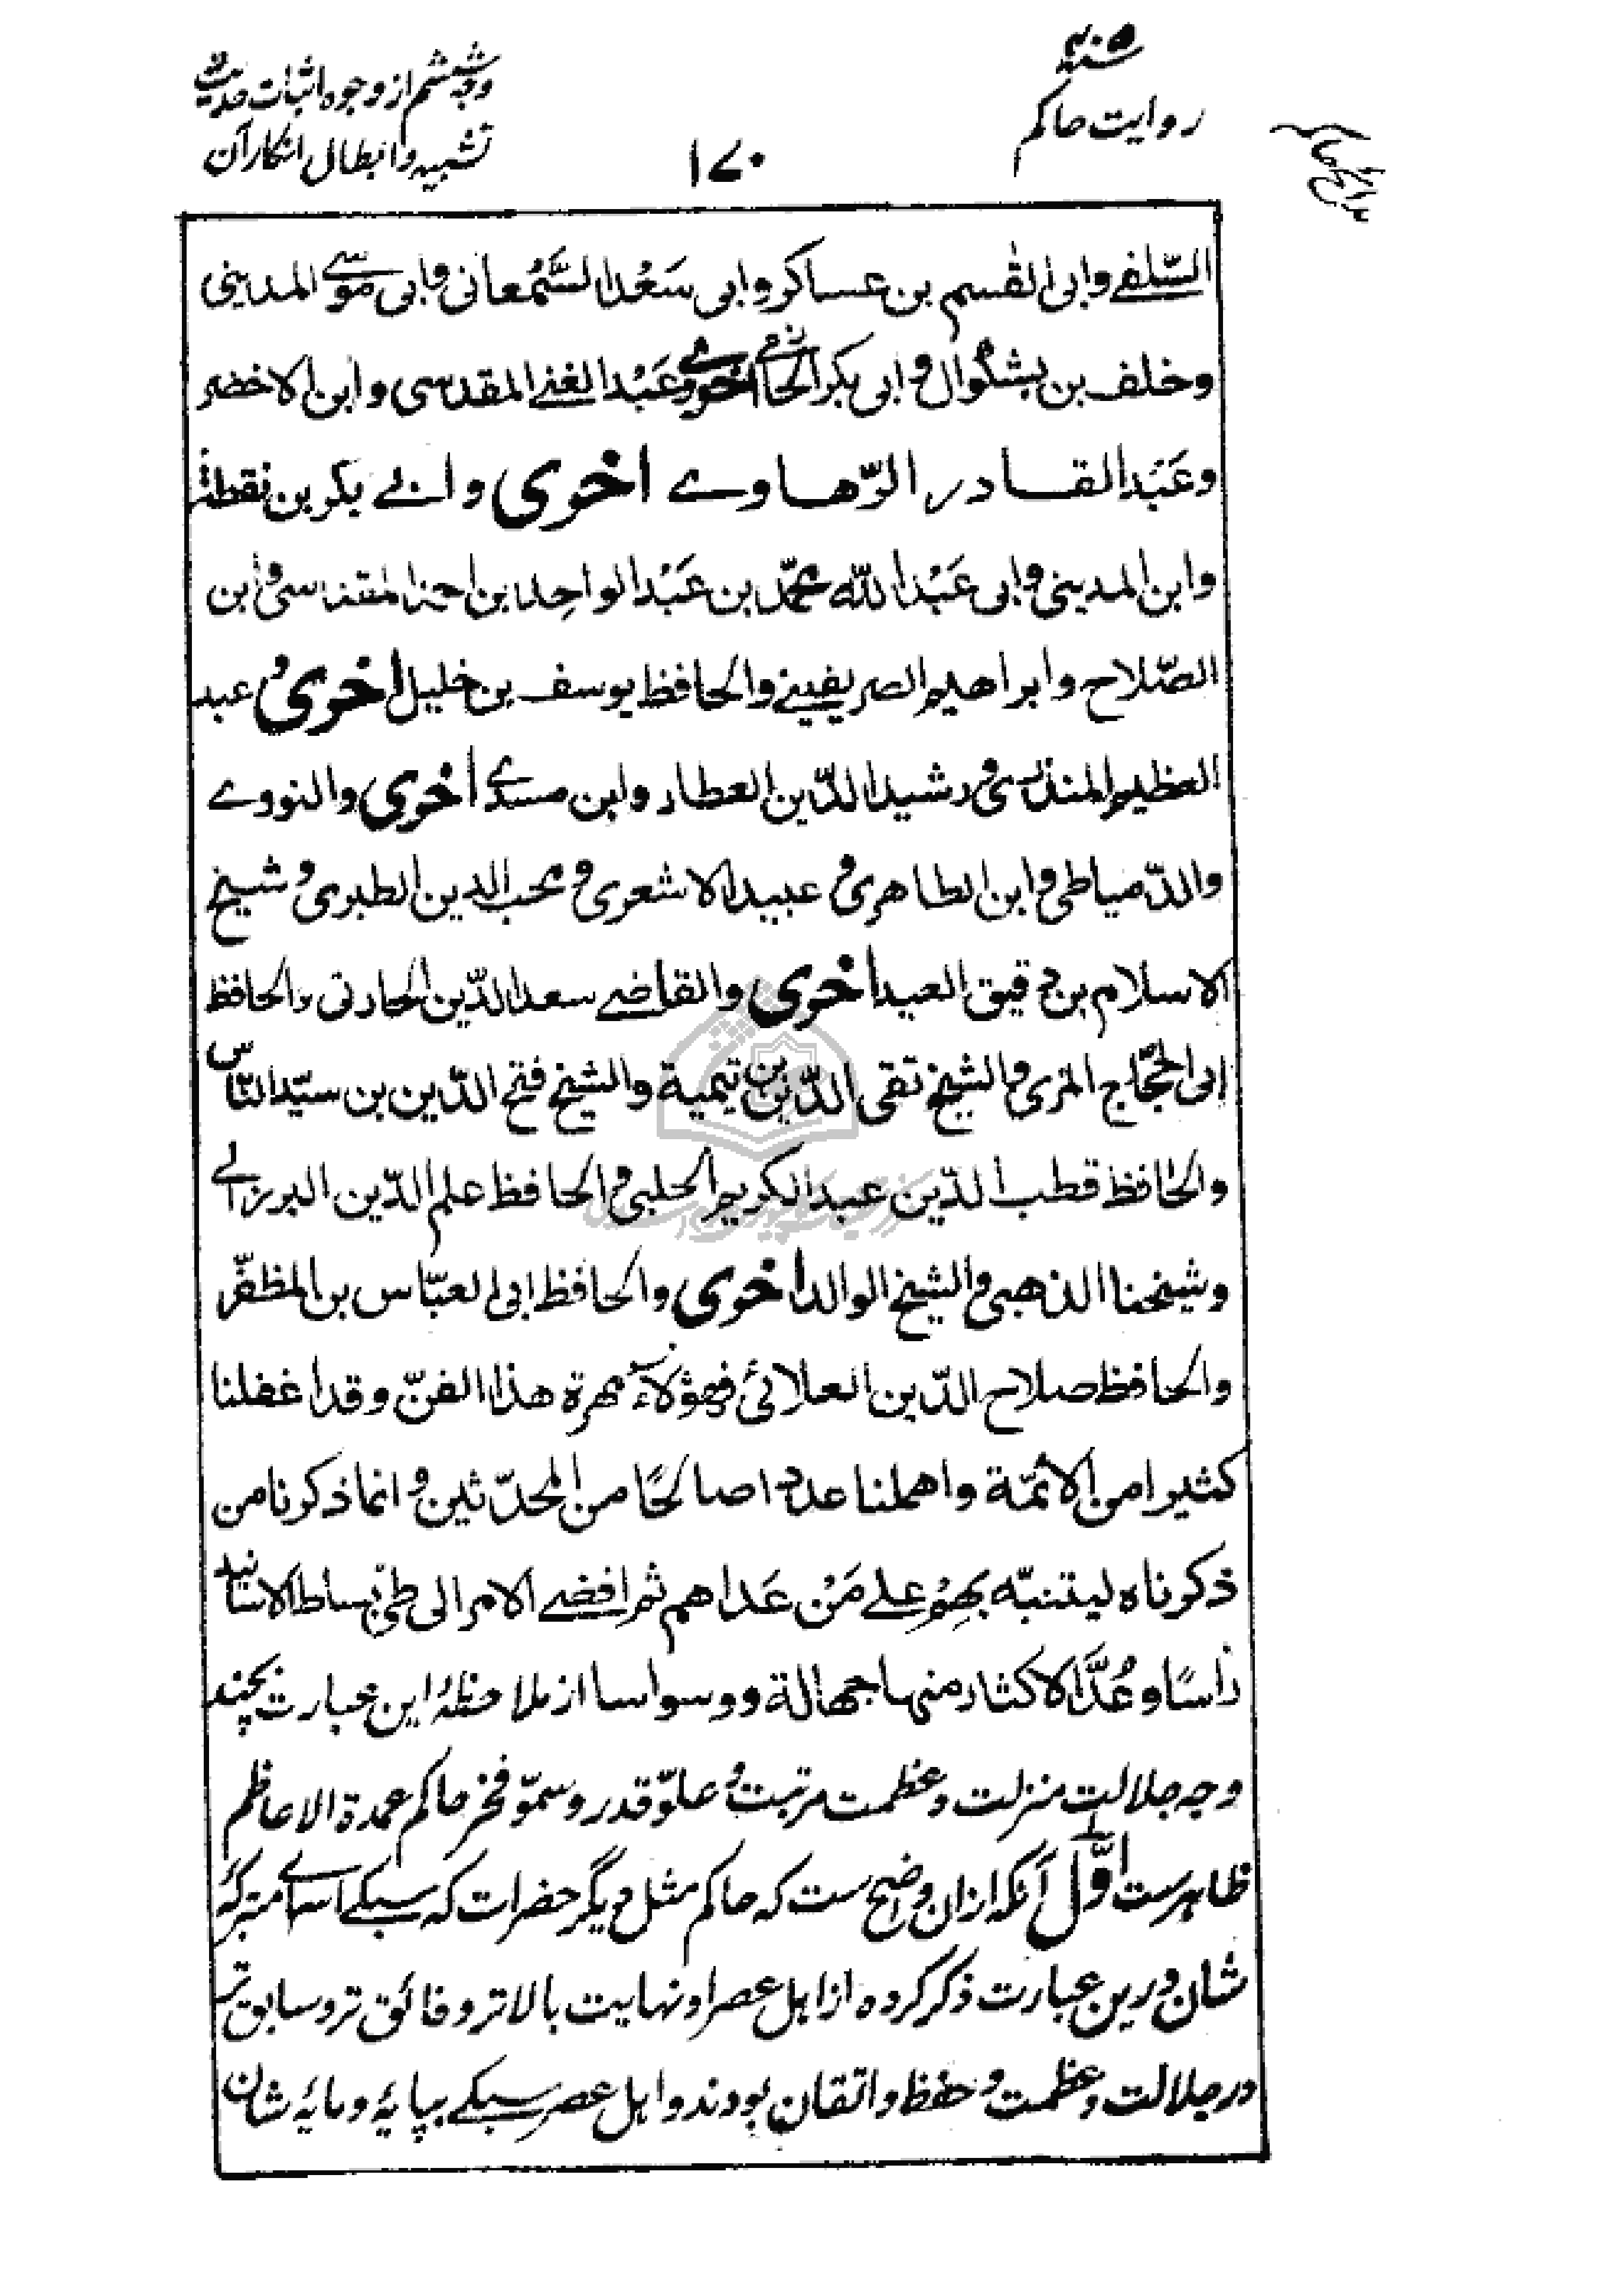 روایت حاکم
۱۷۰
وجه ششم از وجوه اثبات حدیث
تشبیه و ابطال انکار آن
السّلفی وابی القسم بن عساکر وابی سَعْد السَّمْعانی وابی موسی المدینی
وخلف بن بشکوال وابی بکر الحازمی اخری وعَبْد الغنی المقدسی وابن الاخضر
وعَبْد القادر الرّهاوے اخری وابے بکر بن نقطة
وابن المدینی وابی عَبْد اللّٰه محمّد بن عَبْد الواحد بن احمد المقدسی وابن
الصّلاح وابراهیم الصریفینے والحافظ یوسف بن خلیل اخری وعبد
العظیم المنذری ورشید الدّین العطار وابن مسدے اخری والنووے
والدّمیاطی وابن الطاهری وعبید الاشعری ومحب الدین الطبری وشیخ
الاسلام بن دقیق العید اخری والقاضے سعد الدّین الحارثی والحافظ
ابی الحجّاج المزی والشیخ تقی الدّین بن تیمیة والشیخ فتح الدّین بن سیّد النّاس
والحافظ قطب الدّین عبد الکریم الحلبی والحافظ علم الدّین البرزالے
وشیخنا الذهبی والشیخ الوالد اخری والحافظ ابی العبّاس بن المظفّر
والحافظ صلاح الدّین العلائی فهؤلآء مهرة هذا الفنّ وقد اغفلنا
کثیرا من الائمّة واهملنا عددا صالحًا من المحدّثین وانما ذکرنا من
ذکرناه لیتنبّه بهم علے مَنْ عَداهم ثم افضے الامر الی طیّ بساط الاسانید
رأسًا وعُدَّ الاکثار منها جهالة ووسواسا از ملاحظهٔ این عبارت بچند
وجه جلالت منزلت وعظمت مرتبت وعلوّ قدر وسموّ فخر حاکم عمدة الاعاظم
ظاهرست اوّل آنکه ازان واضح ست که حاکم مثل دیگر حضرات که سبکے اسامے متبرکهٔ
شان درین عبارت ذکر کرده از اهل عصر او نهایت بالاتر وفائق تر وسابق تر
در جلالت وعظمت وحفظ واتقان بودند واهل عصر سبکے بپایهٔ ومایهٔ شان